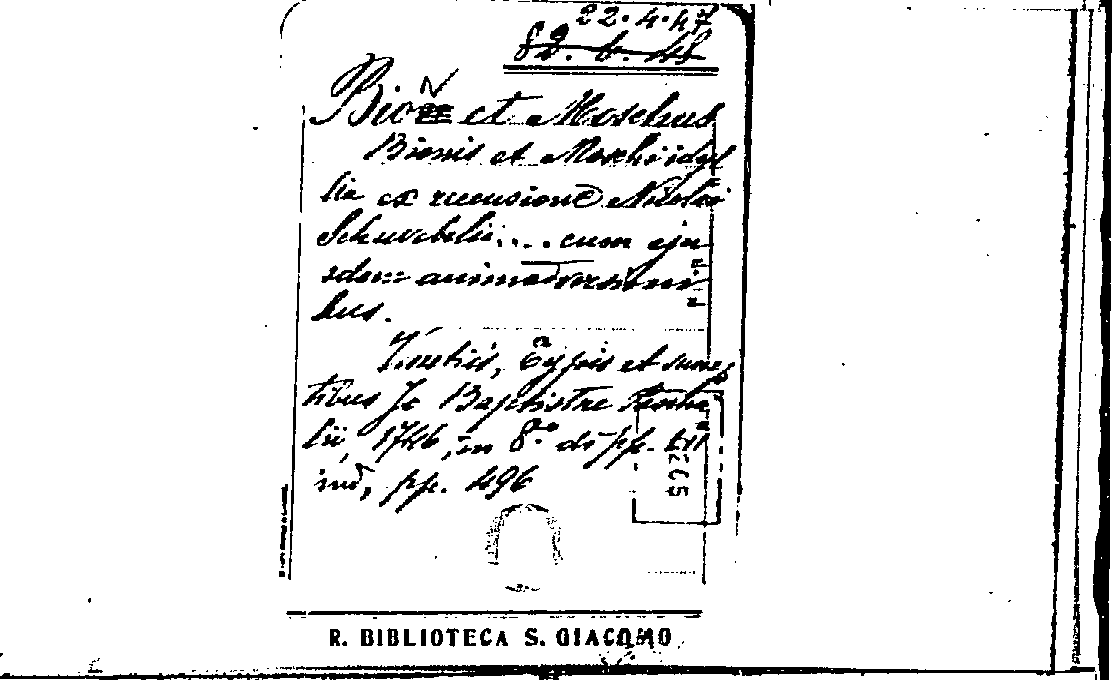 22.4.47
82.6.48
Bion et Moschus
Bionis et Moschi idyl
lia ex recensione Nicolai
Schwebelii.... cum eju
sdem animadversioni
bus.
Venetiis, Typis et sump
tibus Jo Baptistae Pascha
lii, 1746, in 8.° di pp.
ind, pp. 496
R. BIBLIOTECA S. GIACOMO